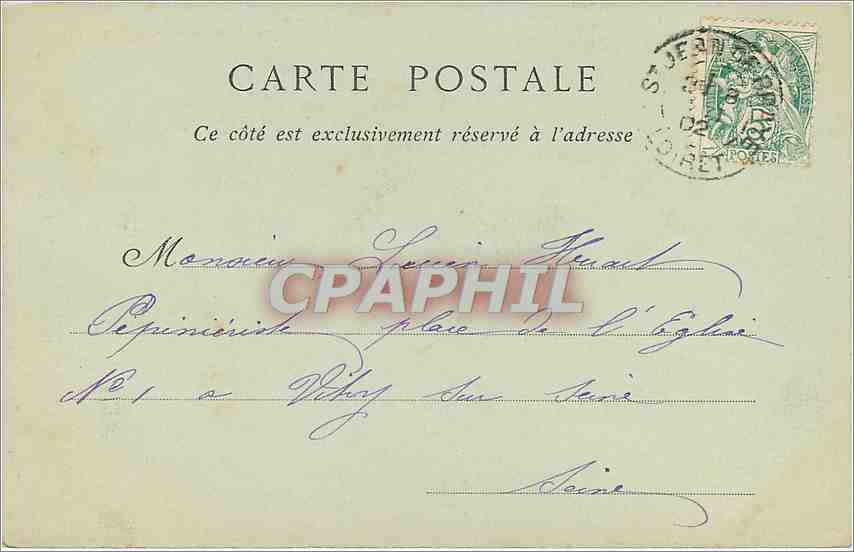 CARTE POSTALE
Ce côté est exclusivement réservé à l'adresse
ST JEAN DE BRAYE
02
LOIRET
POSTES
Monsieur Lucien Huart
CPAPHIL
Pépiniériste place de l'Eglise
No 1 a Vitry sur Seine
Seine